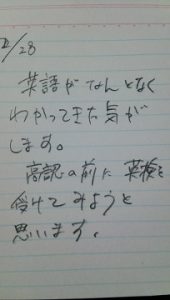 2/28
英語がなんとなく
わかってきた気が
します。
高認の前に英検を
受けてみようと
思います。